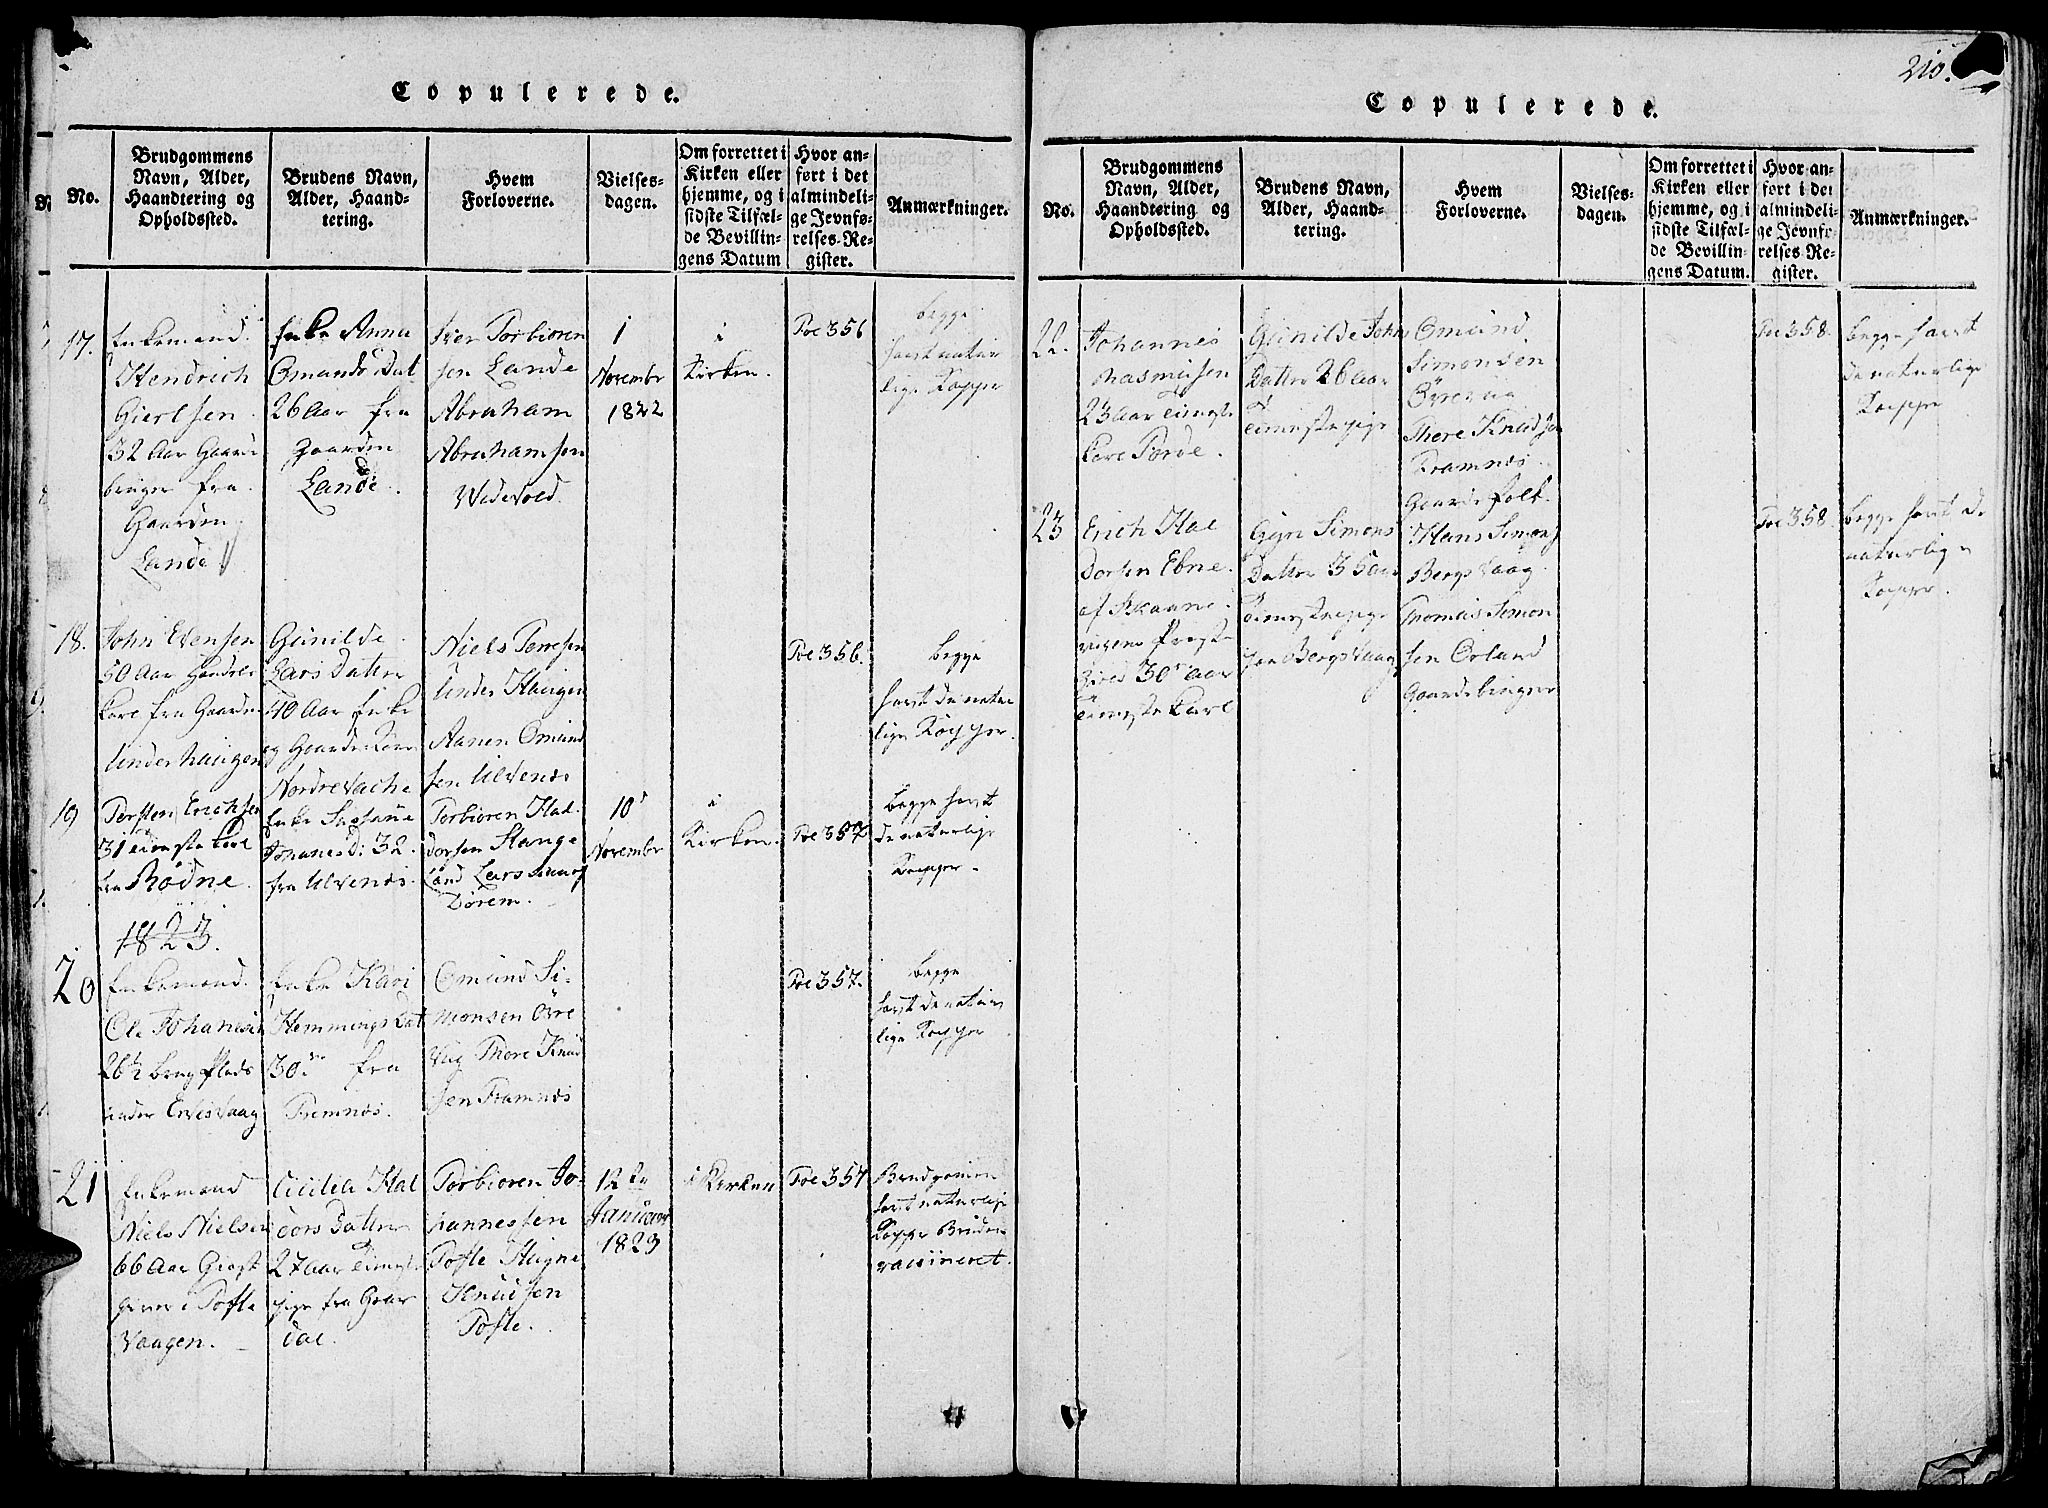 210.
Copulerede.
No.
Brudgommens
Navn, Alder,
Haandtering og
Opholdssted.
Brudens Navn,
Alder, Haand-
tering.
Hvem
Forloverne.
Vielses-
dagen.
Om forrettet i
Kirken eller
hjemme, og i
sidste Tilfæl-
de Bevillin-
gens Datum
Hvor an-
ført i det
almindeli-
ge Jevnfø-
relses-Re-
gister.
Anmærkninger.
17.
Enkemand
Hendrich
Giertsen
32 Aar Gaard
bruger fra
Gaarden
Lande
Enke Anna
Omunds Dat
26 Aar fra
gaarden
Lande.
Torbioren
sen Lande
Abraham
Abrahamsen
Widevold
1
November
1822
i
Kirken.
Foe 356
begge
havt natur
lige Kopper
18.
John Evensen
50 Aar
kare fra Gaarden
Underhaugen
Gunilde
Lars Datter
40 Aar Enke
og Gaarde
Nordre Vache
Niels Torresen
Under Haugen
Aanen Omund
sen Ulvenæs
Foe 356.
begge
havt de natur
lige Kopper.
19
Torsten Erichsen
31 tieneste karl
fra Rødne.
Enke Susane
Johanes D: 32
fra Ulvenæs.
Torbioren Hal
dorsen Stange
land Lars
Dørem.
10
November
i
Kirken.
Foe 357
begge havt
de naturlige
Kopper.
1823.
20
Enkemand
Ole Johanesen
26½ brug Plads
under Ervesvaag
Enke Kari
Hemmings Dat
30 fra
Fremnæs.
Omund Si-
monsen Øre
Vag Thore Knud
sen Framnæs
Foe 357.
begge
havt de natur
lige Kopper
21
Enkemand
Niels Nielsen
66 Aar Giest
giver i Tofte
Vaagen.
Cicilia Hal
dors Datter
27 aar tienest
pige fra Gaar
dal.
Torbioren Jo-
hannessen
Tofte Hagne
Knudsen
Tofte.
12te
Januar
1823
i Kirken
Foe 357
Brudgomen
havt naturlige
Kopper Bruden
vacineret.
Copulerede.
No.
Brudgommens
Navn, Alder,
Haandtering og
Opholdssted.
Brudens Navn,
Alder, Haand-
tering.
Hvem
Forloverne.
Vielses-
dagen.
Om forrettet i
Kirken eller
hjemme, og i
sidste Tilfæl-
de Bevillin-
gens Datum.
Hvor an-
ført i det
almindeli-
ge Jevnfø-
relses-Re-
gister.
Anmærkninger.
22.
Johannes
Rasmusen
23 Aar tienest
kare Førde.
Gunilde John
Datter 26 Aar
tienestepige
Omund
Simonsen
Øyrevig
Thore Knudsen
Framnæs
Gaarde folk.
Foe 358.
begge havt
de naturlige
Kopper
23
Erich Hal
Dorsen Ebne
af Skaane
vigens Præste
gield 30 aar
tieneste karl
Gyri Simons
Datter 35 aar
tienestepige
paa Bergsvaag
Hans Simons
Bergsvaag
Thomas Simon
sen Orland
Gaardebruger
Foe 358.
begge havt de
naturlige
Kopper.